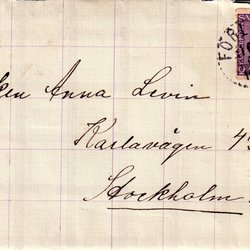 FÖR
ken Anna Levin
Karlavägen 45
Stockholm.